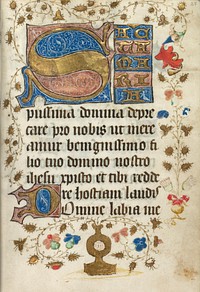 SAC
TAMA
RIA
piissima domina depre
care pro nobis ut mere
amur benignissimo fi
lio tuo domino nostro
ihesu xpisto et tibi redde
re hostiam laudis
Domine labia me